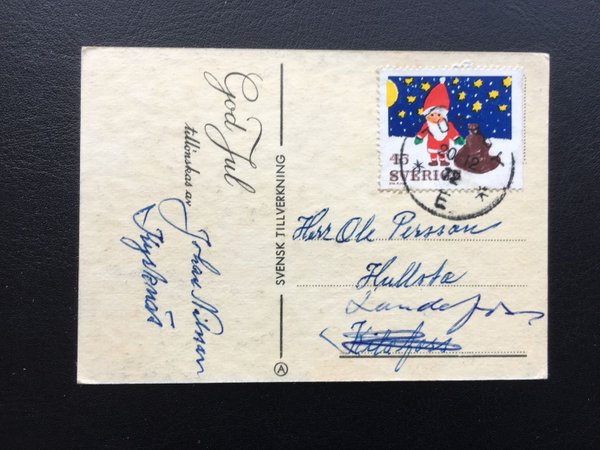 God Jul
tillönskas av
Johan Nilsson
SVENSK TILLVERKNING
A
45
SVERIGE
20.12
Herr Ole Persson
Hullsta